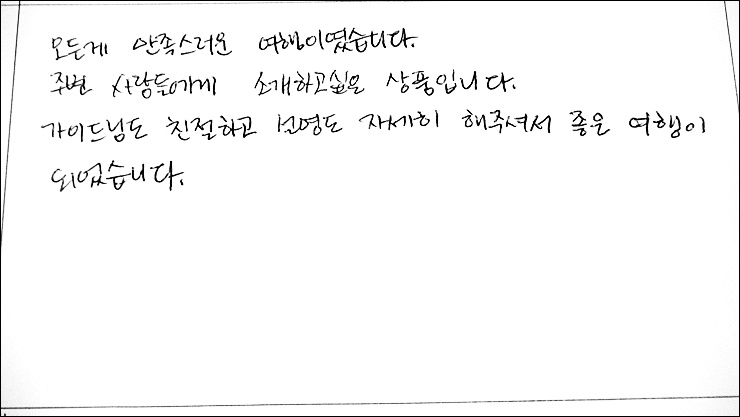 모든게 만족스러운 여행이였습니다.
주변 사람들에게 소개하고싶은 상품입니다.
가이드님도 친절하고 설명도 자세히 해주셔서 좋은 여행이
되었습니다.